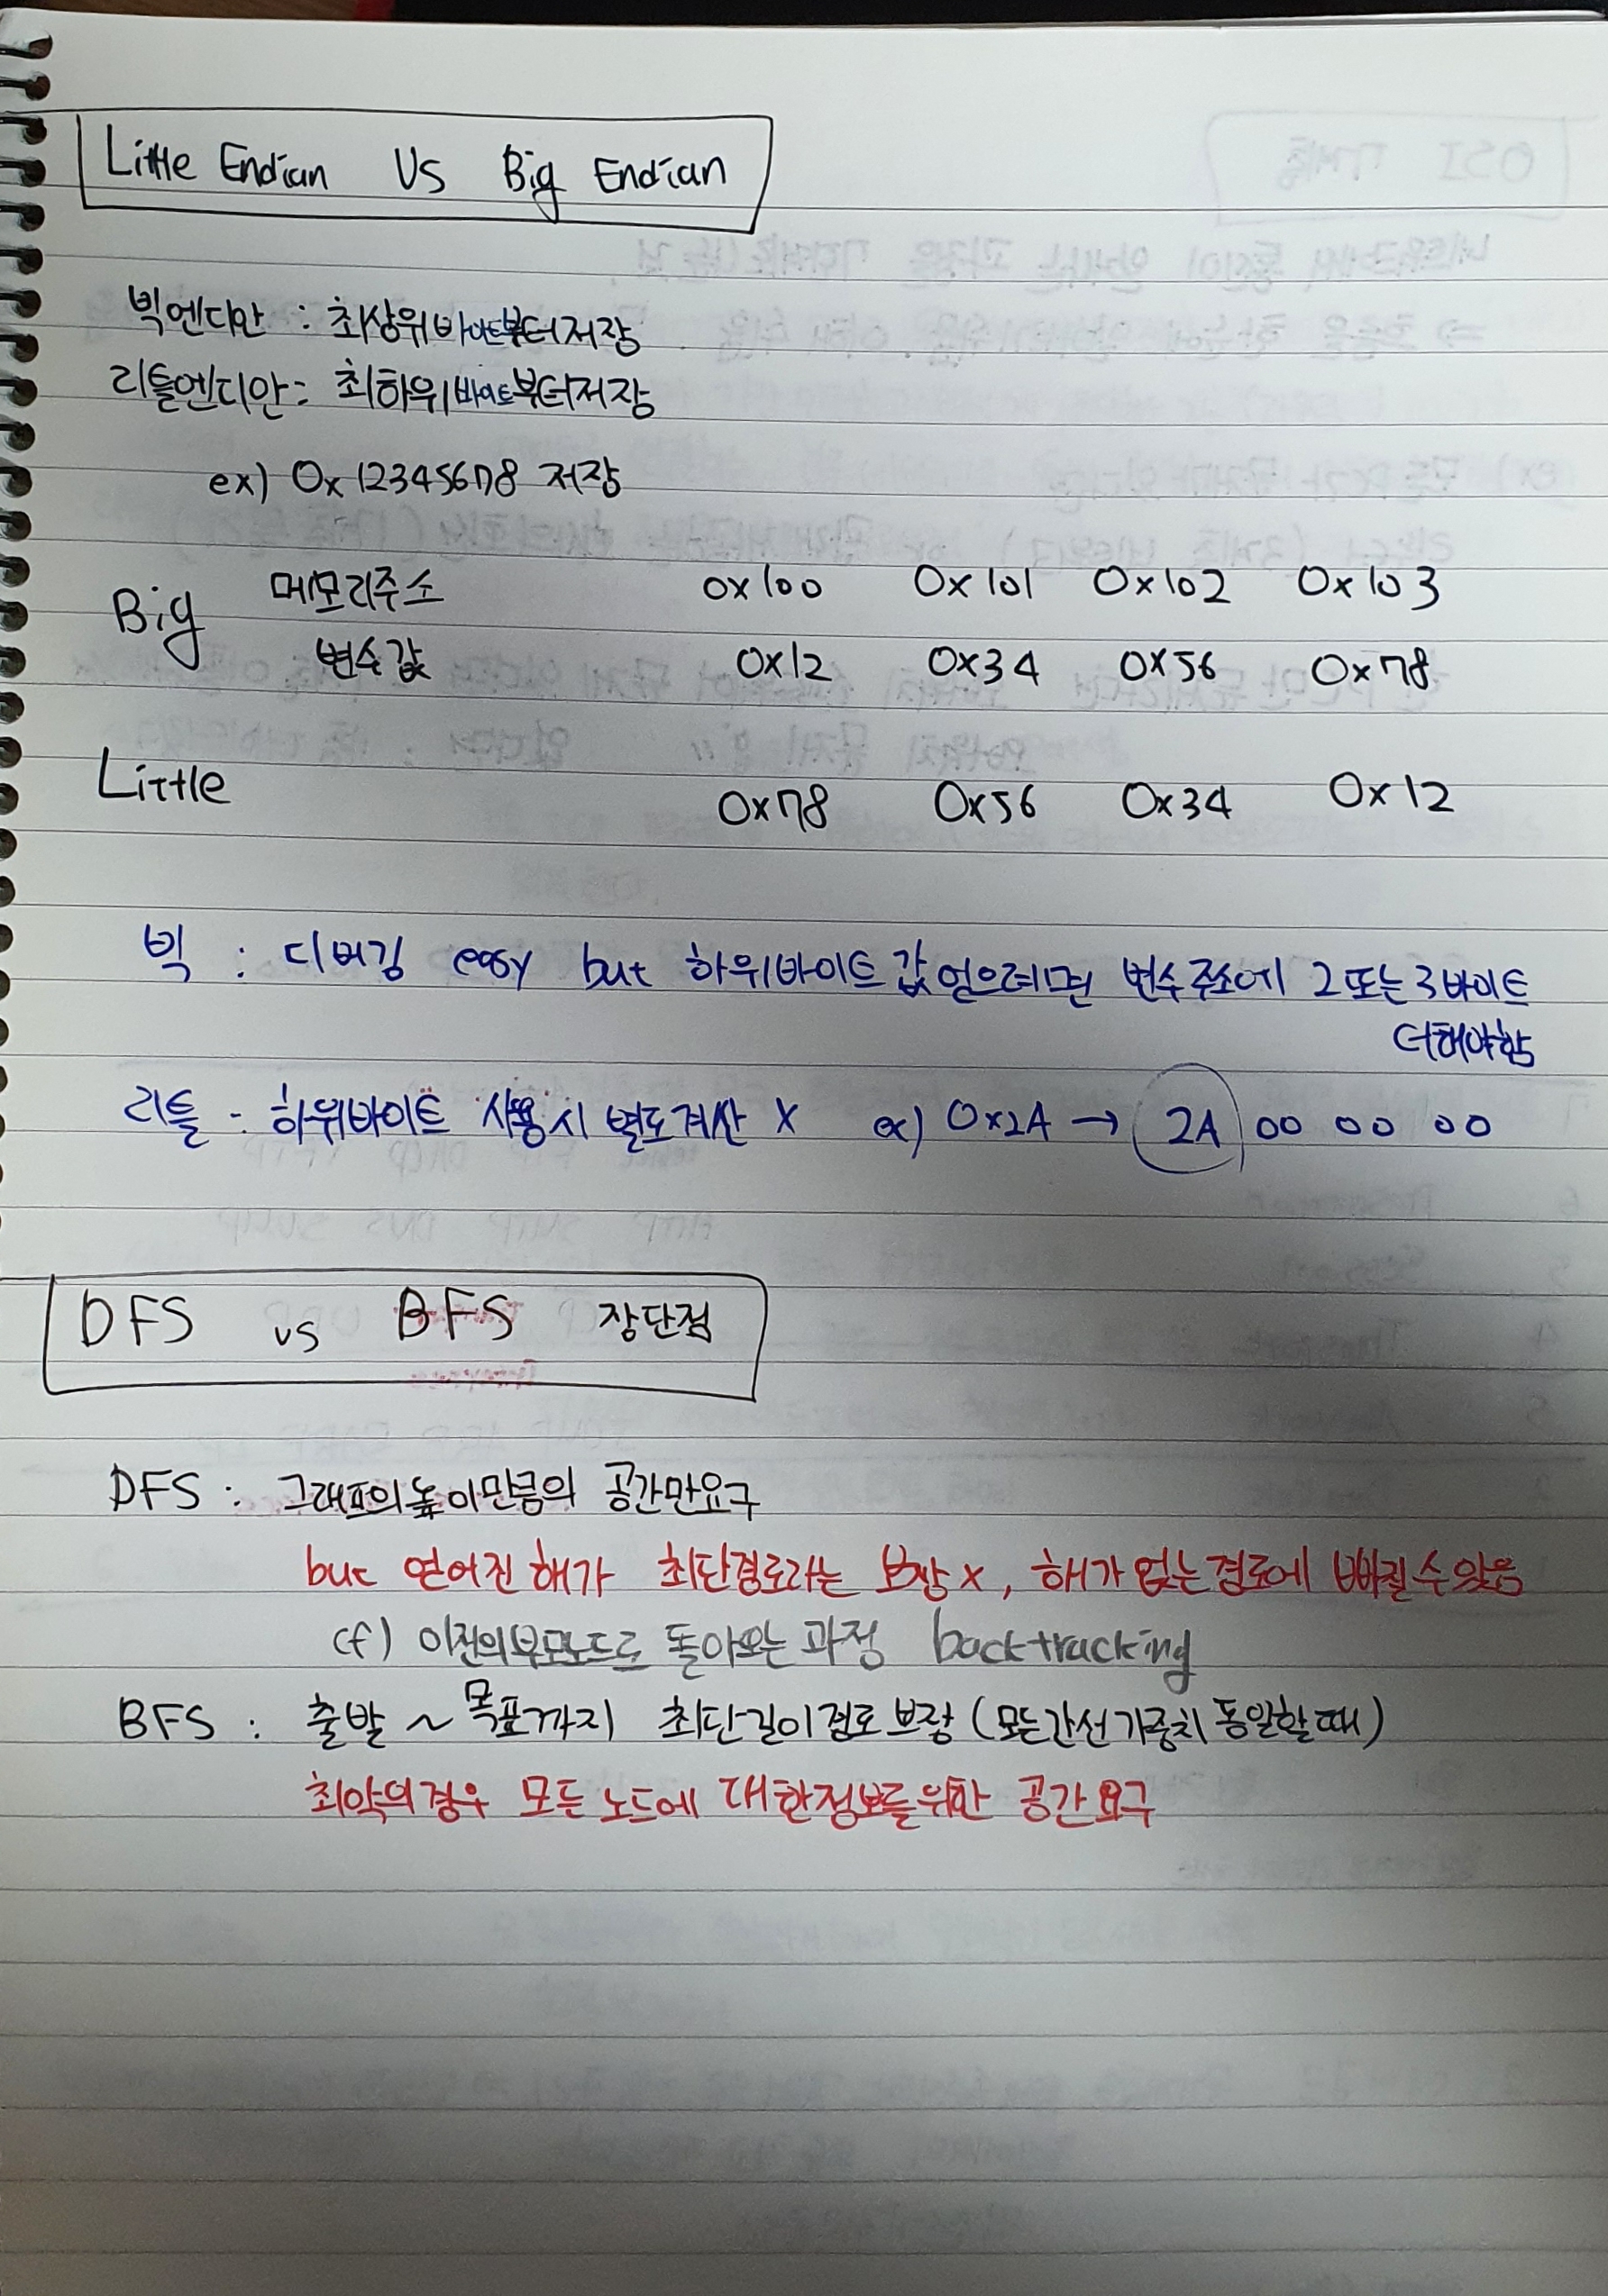 Little Endian Vs Big Endian
빅엔디안 : 최상위바이트부터저장
리틀엔디안 : 최하위바이트부터저장
ex) 0x12345678 저장
Big 메모리주소 0x100 0x101 0x102 0x103
변수값 0x12 0x34 0x56 0x78
Little 0x78 0x56 0x34 0x12
빅 : 디버깅 easy but 하위바이트값얻으려면 변수주소에 2또는3바이트
더해야함
리틀 : 하위바이트 사용시 별도계산 X ex) 0x2A → 2A 00 00 00
DFS vs BFS 장단점
DFS : 그래프의높이만큼의 공간만요구
but 얻어진해가 최단경로라는 보장x, 해가없는경로에 빠질수있음
cf) 이전의부모노드로 돌아오는과정 backtracking
BFS : 출발 ~ 목표까지 최단길이경로보장 (모든간선가중치동일할때)
최악의경우 모든노드에 대한정보를위한 공간요구